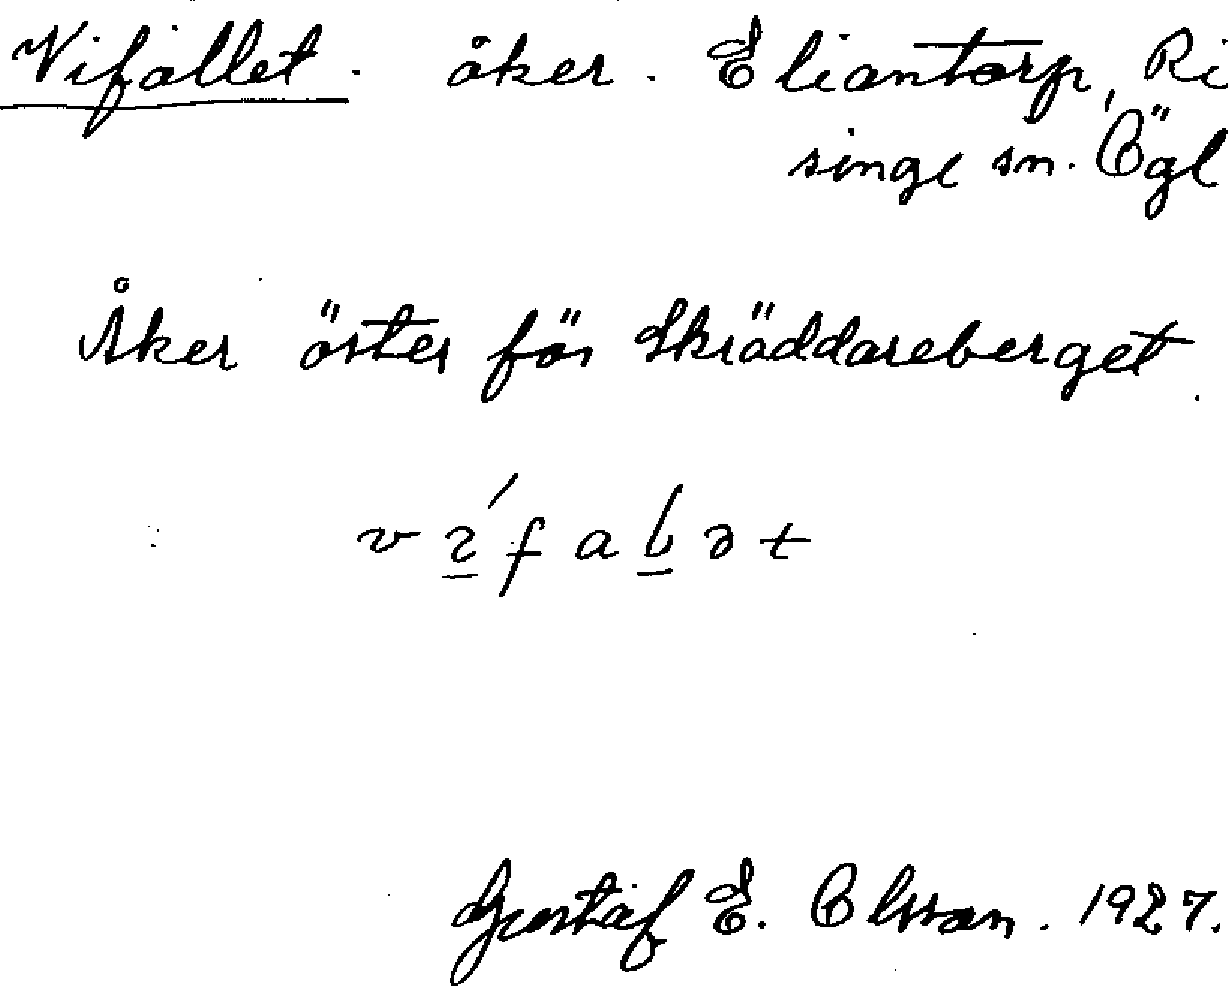 Vifallet. åker. Eliantorp, Ri
singe sn. Ögl
Åker öster för Skräddareberget.
Gustaf E. Olsson. 1927.